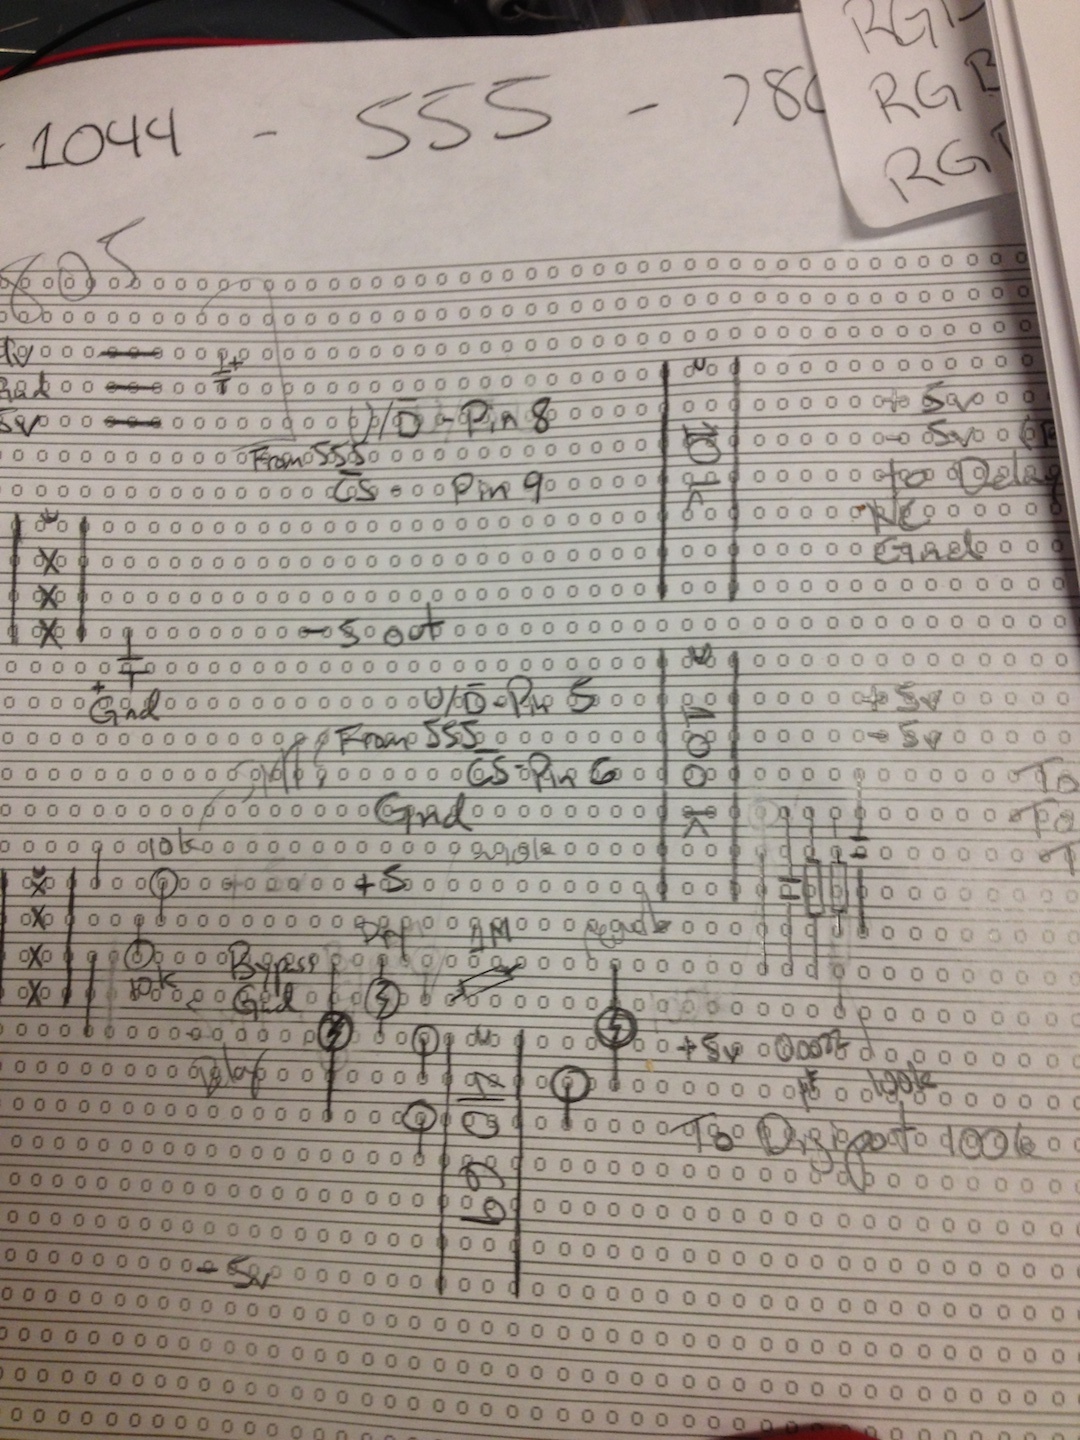 RG
RGB
RG
1044 - 555 - 780
805
Gnd
5v
U/D - Pin 8
From 555
CS - Pin 9
10k
+ 5v
- 5v
to Delay
NC
Gnd
- 5 out
Gnd
U/D - Pin 5
From 555
CS - Pin 6
Gnd
100k
+ 5v
- 5v
To
To
T
10k
+5
1M
Bypass
Gnd
10k
Delay
+5v
100k
To Digipot 100k
- 5v